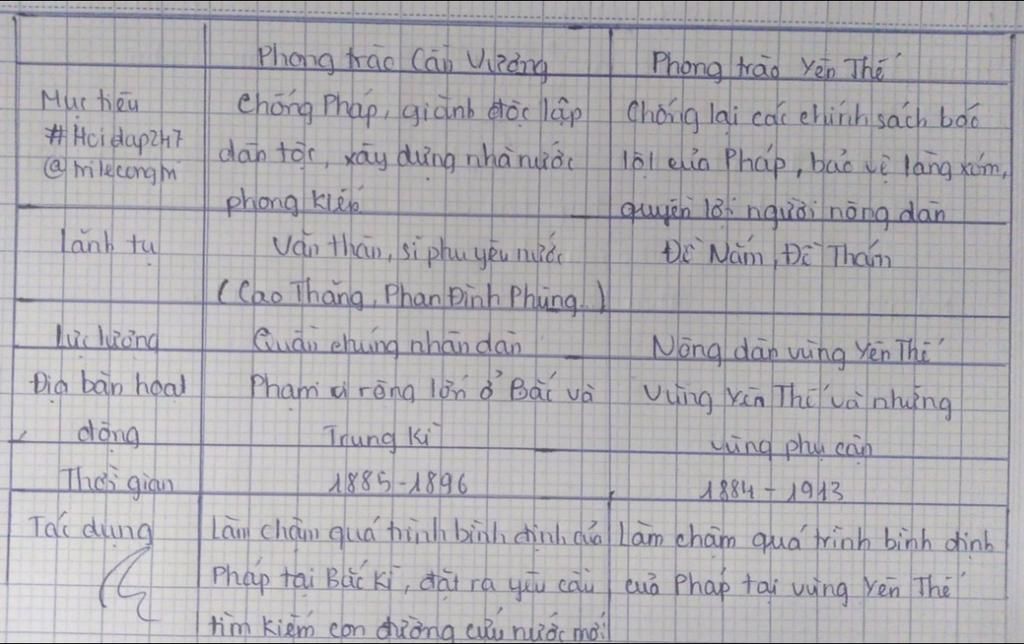 Phong trào Cần Vương
Phong trào Yên Thế
Mục tiêu
#Hoidap247
@trilecongm
chống Pháp, giành độc lập
dân tộc, xây dựng nhà nước
phong kiến
Chống lại các chính sách bóc
lột của Pháp, bảo vệ làng xóm,
quyền lợi người nông dân
Lãnh tụ
Văn thân, sĩ phu yêu nước
(Cao Thắng, Phan Đình Phùng..)
Đề Nắm, Đề Thám
Lực lượng
Quần chúng nhân dân
Nông dân vùng Yên Thế
Địa bàn hoạt
động
Phạm vi rộng lớn ở Bắc và
Trung Kì
Vùng Yên Thế và những
vùng phụ cận
Thời gian
1885-1896
1884-1913
Tác dụng
Làm chậm quá trình bình định của
Pháp tại Bắc Kì, đặt ra yêu cầu
tìm kiếm con đường cứu nước mới
Làm chậm quá trình bình định
của Pháp tại vùng Yên Thế